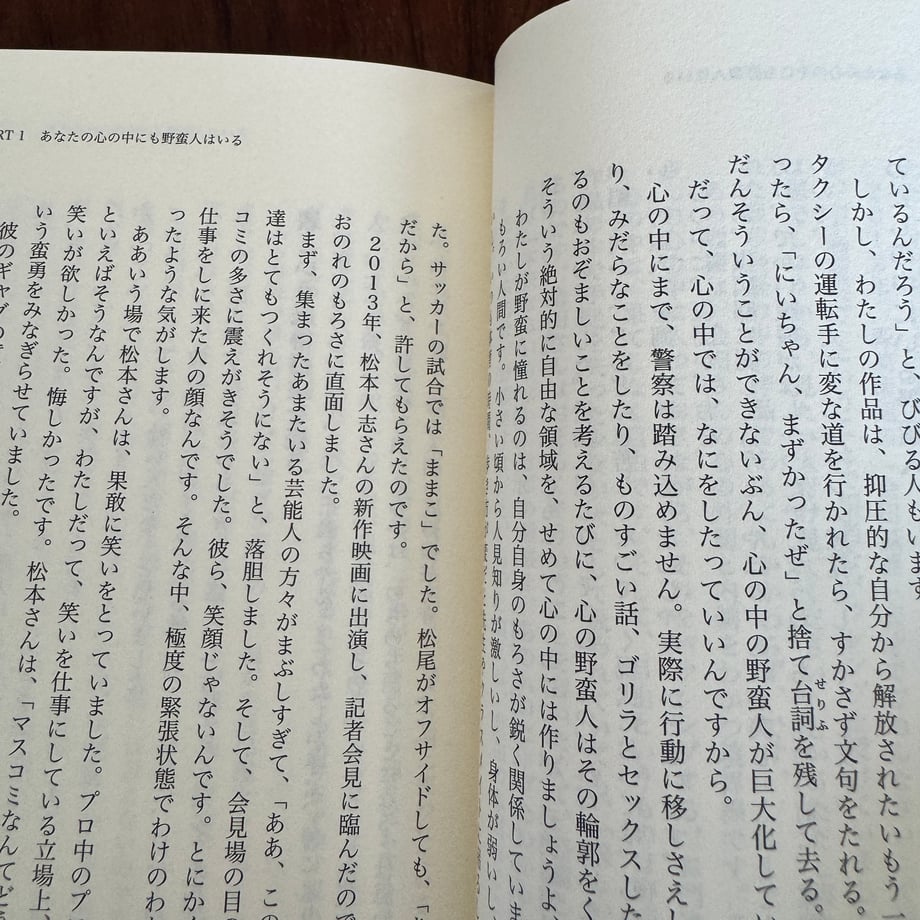 ているんだろう」と、びびる人もいます
しかし、わたしの作品は、抑圧的な自分から解放されたいもう一
タクシーの運転手に変な道を行かれたら、すかさず文句をたれる。
ったら、「にいちゃん、まずかったぜ」と捨て台詞を残して去る。
せりふ
だんそういうことができないぶん、心の中の野蛮人が巨大化して
だって、心の中では、なにをしたっていいんですから。
心の中にまで、警察は踏み込めません。実際に行動に移しさえし
り、みだらなことをしたり、ものすごい話、ゴリラとセックスした
るのもおぞましいことを考えるたびに、心の野蛮人はその輪郭をく
そういう絶対的に自由な領域を、せめて心の中には作りましょうよ、
わたしが野蛮に憧れるのは、自分自身のもろさが鋭く関係していま
もろい人間です。小さい頃から人見知りが激しいし、身体が弱いし、
RT 1 あなたの心の中にも野蛮人はいる
た。サッカーの試合では「ままこ」でした。松尾がオフサイドしても、「
だから」と、許してもらえたのです。
2013年、松本人志さんの新作映画に出演し、記者会見に臨んだので
おのれのもろさに直面しました。
まず、集まったあまたいる芸能人の方々がまぶしすぎて、「ああ、この
達はとてもつくれそうにない」と、落胆しました。そして、会見場の目の
コミの多さに震えがきそうでした。彼ら、笑顔じゃないんです。とにかく
仕事をしに来た人の顔なんです。そんな中、極度の緊張状態でわけのわ
ったような気がします。
ああいう場で松本さんは、果敢に笑いをとっていました。プロ中のプ
といえばそうなんですが、わたしだって、笑いを仕事にしている立場上、
笑いが欲しかった。悔しかったです。松本さんは、「マスコミなんてど
いう蛮勇をみなぎらせていました。
彼のギャグの